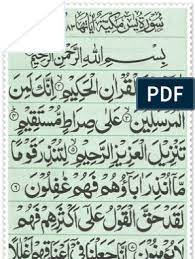 سورة يس مكية آياتها
بِسْمِ اللّٰهِ الرَّحْمٰنِ الرَّحِيْمِ
الْقُرْاٰنِ الْحَكِيْمِ اِنَّكَ لَمِنَ
الْمُرْسَلِيْنَ عَلٰى صِرَاطٍ مُّسْتَقِيْمٍ
تَنْزِيْلَ الْعَزِيْزِ الرَّحِيْمِ لِتُنْذِرَ قَوْمًا
مَّآ اُنْذِرَ اٰبَآؤُهُمْ فَهُمْ غٰفِلُوْنَ
لَقَدْ حَقَّ الْقَوْلُ عَلٰٓى اَكْثَرِهِمْ فَهُمْ
لَا يُؤْمِنُوْنَ اِنَّا جَعَلْنَا فِيْٓ اَعْنَاقِهِمْ اَغْلٰلًا
PDF